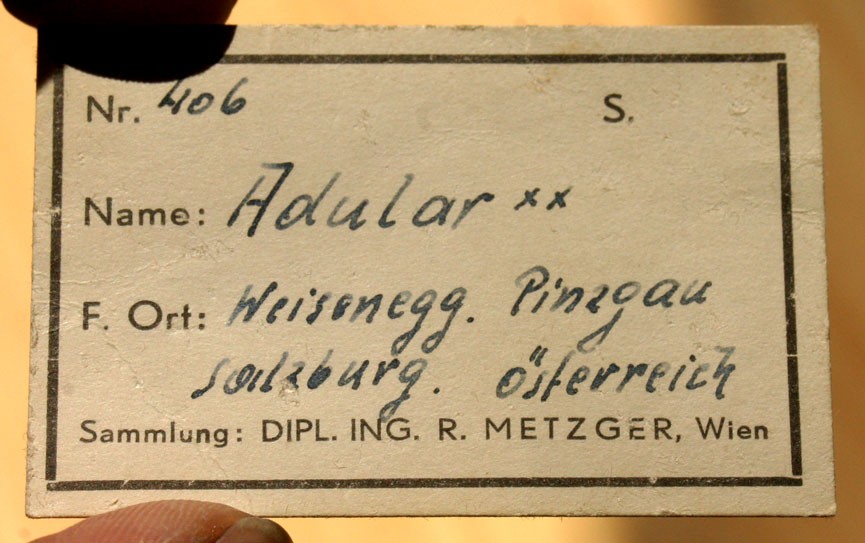 Nr. 406 S.
Name: Adular xx
F. Ort: Weisenegg. Pinzgau
Salzburg. Österreich
Sammlung: DIPL. ING. R. METZGER, Wien